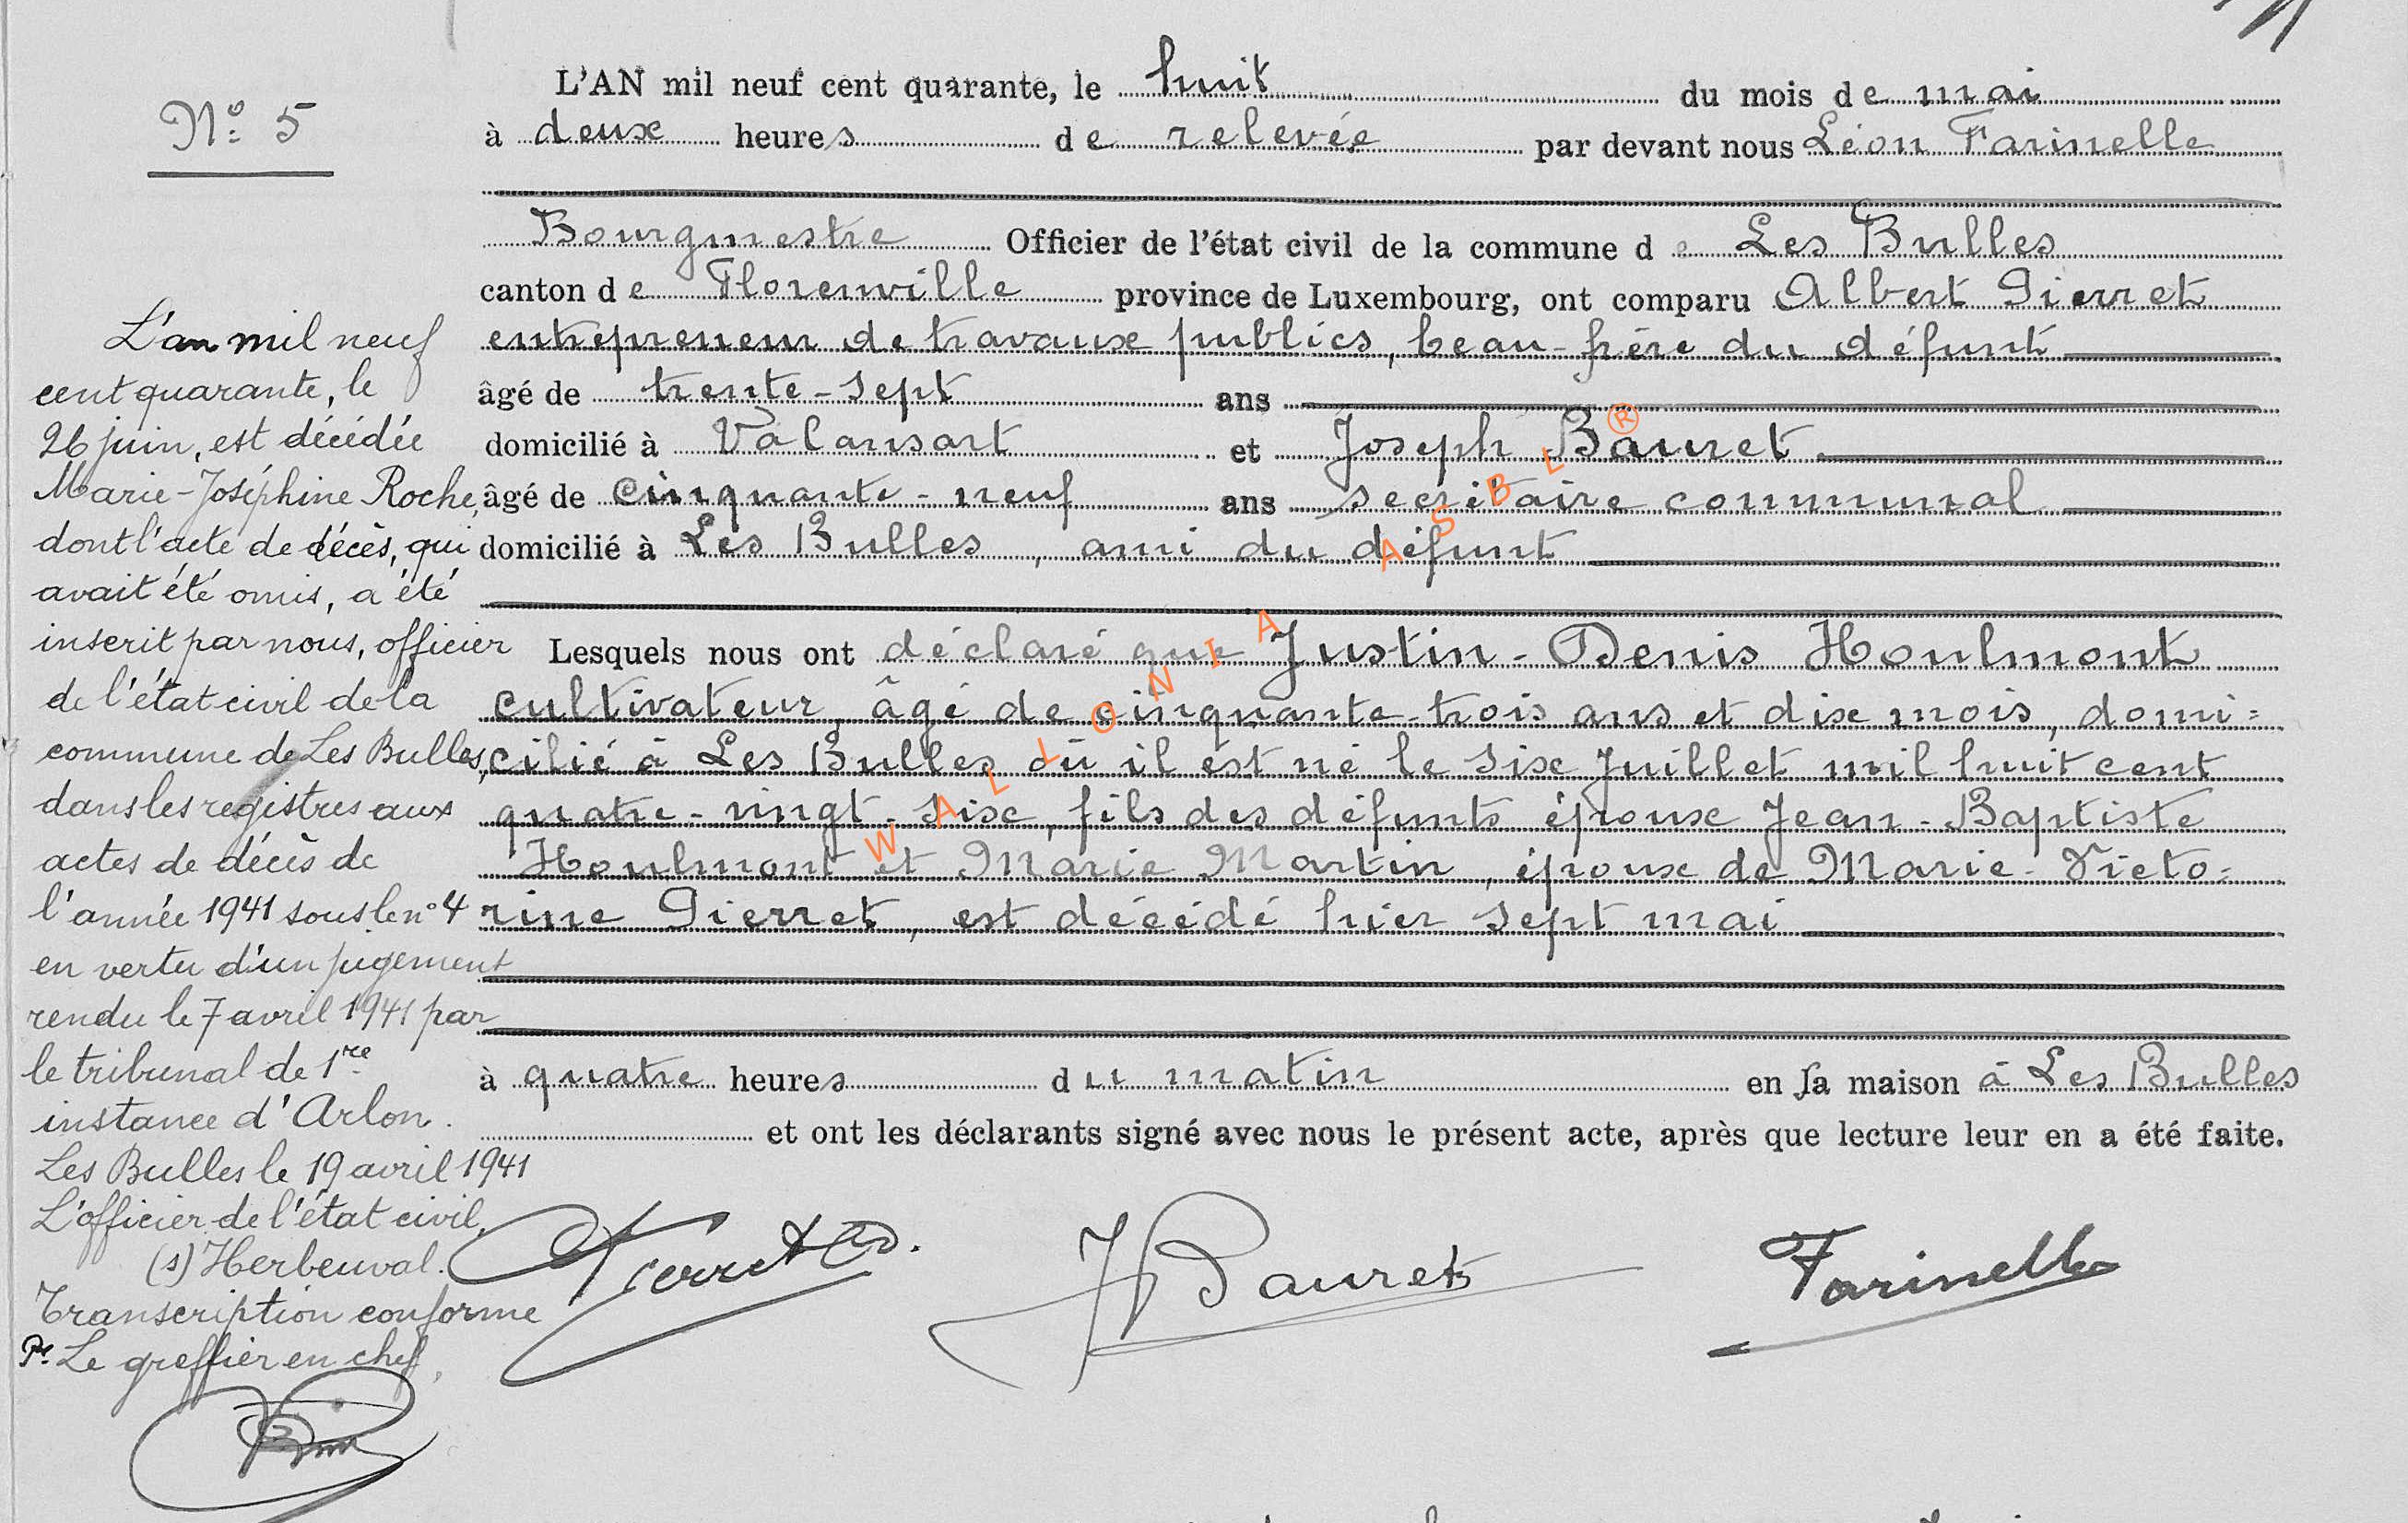 N° 5
L'AN mil neuf cent quarante, le huit du mois de mai
à deux heures de relevée par devant nous Léon Farinelle
Bourgmestre Officier de l'état civil de la commune de Les Bulles
canton de Florenville province de Luxembourg, ont comparu Albert Pierret
entrepreneur de travaux publics, beau-frère du défunt
âgé de trente-sept ans
domicilié à Valansart et Joseph Bauret
âgé de cinquante-neuf ans secrétaire communal
domicilié à Les Bulles, ami du défunt
Lesquels nous ont déclaré que Justin-Denis Houlmont
cultivateur, âgé de cinquante-trois ans et dix mois, domi=
cilié à Les Bulles où il est né le six Juillet mil huit cent
quatre-vingt-six, fils des défunts époux Jean-Baptiste
Houlmont et Marie Martin, époux de Marie-Victo=
rine Pierret, est décédé hier sept mai
à quatre heures du matin en sa maison à Les Bulles
et ont les déclarants signé avec nous le présent acte, après que lecture leur en a été faite.
Pierret A. JBauret Farinelle
L'an mil neuf
cent quarante, le
26 juin, est décédée
Marie-Joséphine Roche,
dont l'acte de décès, qui
avait été omis, a été
inscrit par nous, officier
de l'état civil de la
commune de Les Bulles,
dans les registres aux
actes de décès de
l'année 1941 sous le n° 4
en vertu d'un jugement
rendu le 7 avril 1941 par
le tribunal de 1re
instance d'Arlon.
Les Bulles le 19 avril 1941
L'officier de l'état civil,
(s) Herbeuval.
Transcription conforme
Pr. Le greffier en chef,
WALLONIA ASBL ®